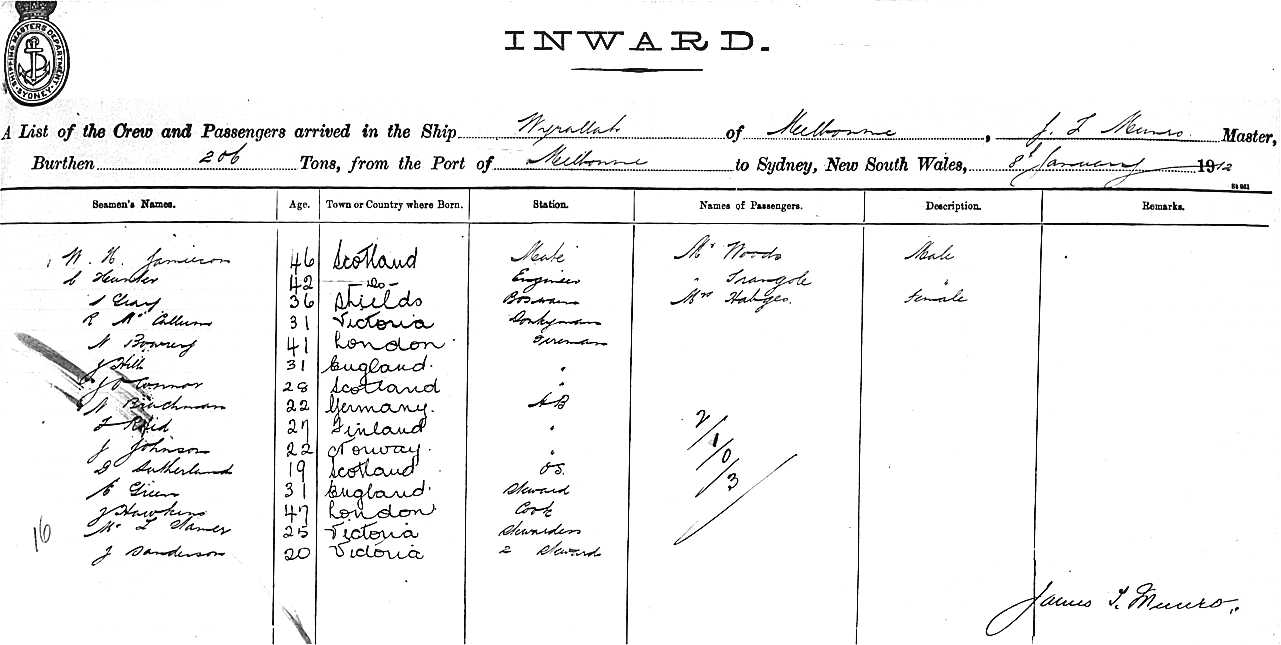 SHIPPING MASTERS DEPARTMENT SYDNEY
INWARD.
A List of the Crew and Passengers arrived in the Ship Wyrallah of Melbourne, J. T. Munro Master,
Burthen 206 Tons, from the Port of Melbourne to Sydney, New South Wales, 8th January 1912
Seamen's Names. Age. Town or Country where Born. Station. Names of Passengers. Description. Remarks.
W. H. Jamieson 46 Scotland Mate Mr Woods Male
Hunter 42 -Do- Engineer " "
36 Shields Boswain Mrs Female
R McCallum 31 Victoria Donkyman
N 41 London Fireman
J Hill 31 England. "
J O'Connor 28 Scotland "
N 22 Germany. AB
Reid 27 Finland "
J Johnson 22 Norway. "
D Sutherland 19 Scotland OS.
Green 31 England. Steward
J Hawkins 47 London Cook
25 Victoria Stewardess
J Sanderson 20 Victoria 2 Steward
2/1/0/3
16
James T. Munro.